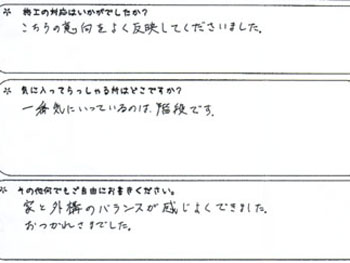 * 施工の対応はいかがでしたか?
こちらの意向をよく反映してくださいました。
* 気に入ってらっしゃる所はどこですか?
一番気にいっているのは、階段です。
* その他何でもご自由にお書きください。
家と外構のバランスが感じよくできました。
おつかれさまでした。